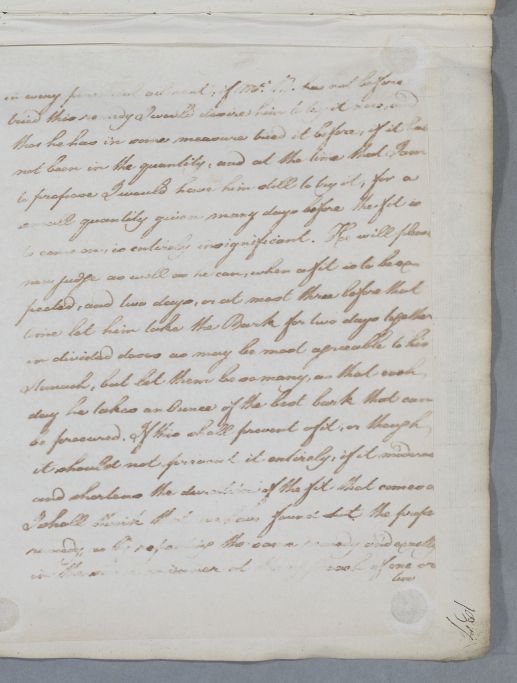 in every
tried this remedy I would desire him to try it now, and
tho he has in some measure tried it before, if it has
not been in the quantity, and at the time that I am
to propose I would have him still to try it, for a
small quantity given many days before the fit is
to come on, is entirely insignificant. He will please
now judge as well as he can, when a fit is to be ex
pected, and two days, or at most three before that
time let him take the Bark for two days together
in divided doses as may be most agreeable to his
stomach, but let them be so many, as that each
day he takes an Ounce of the best bark that can
be procured. If this shall prevent a fit, or though
it should not prevent it entirely, if it moderates
and shortens the duration of the fit that comes on
I shall think that we have found out the proper
remedy, as by repeating the same remedy and exactly
in the same manner at the approach of one or
two